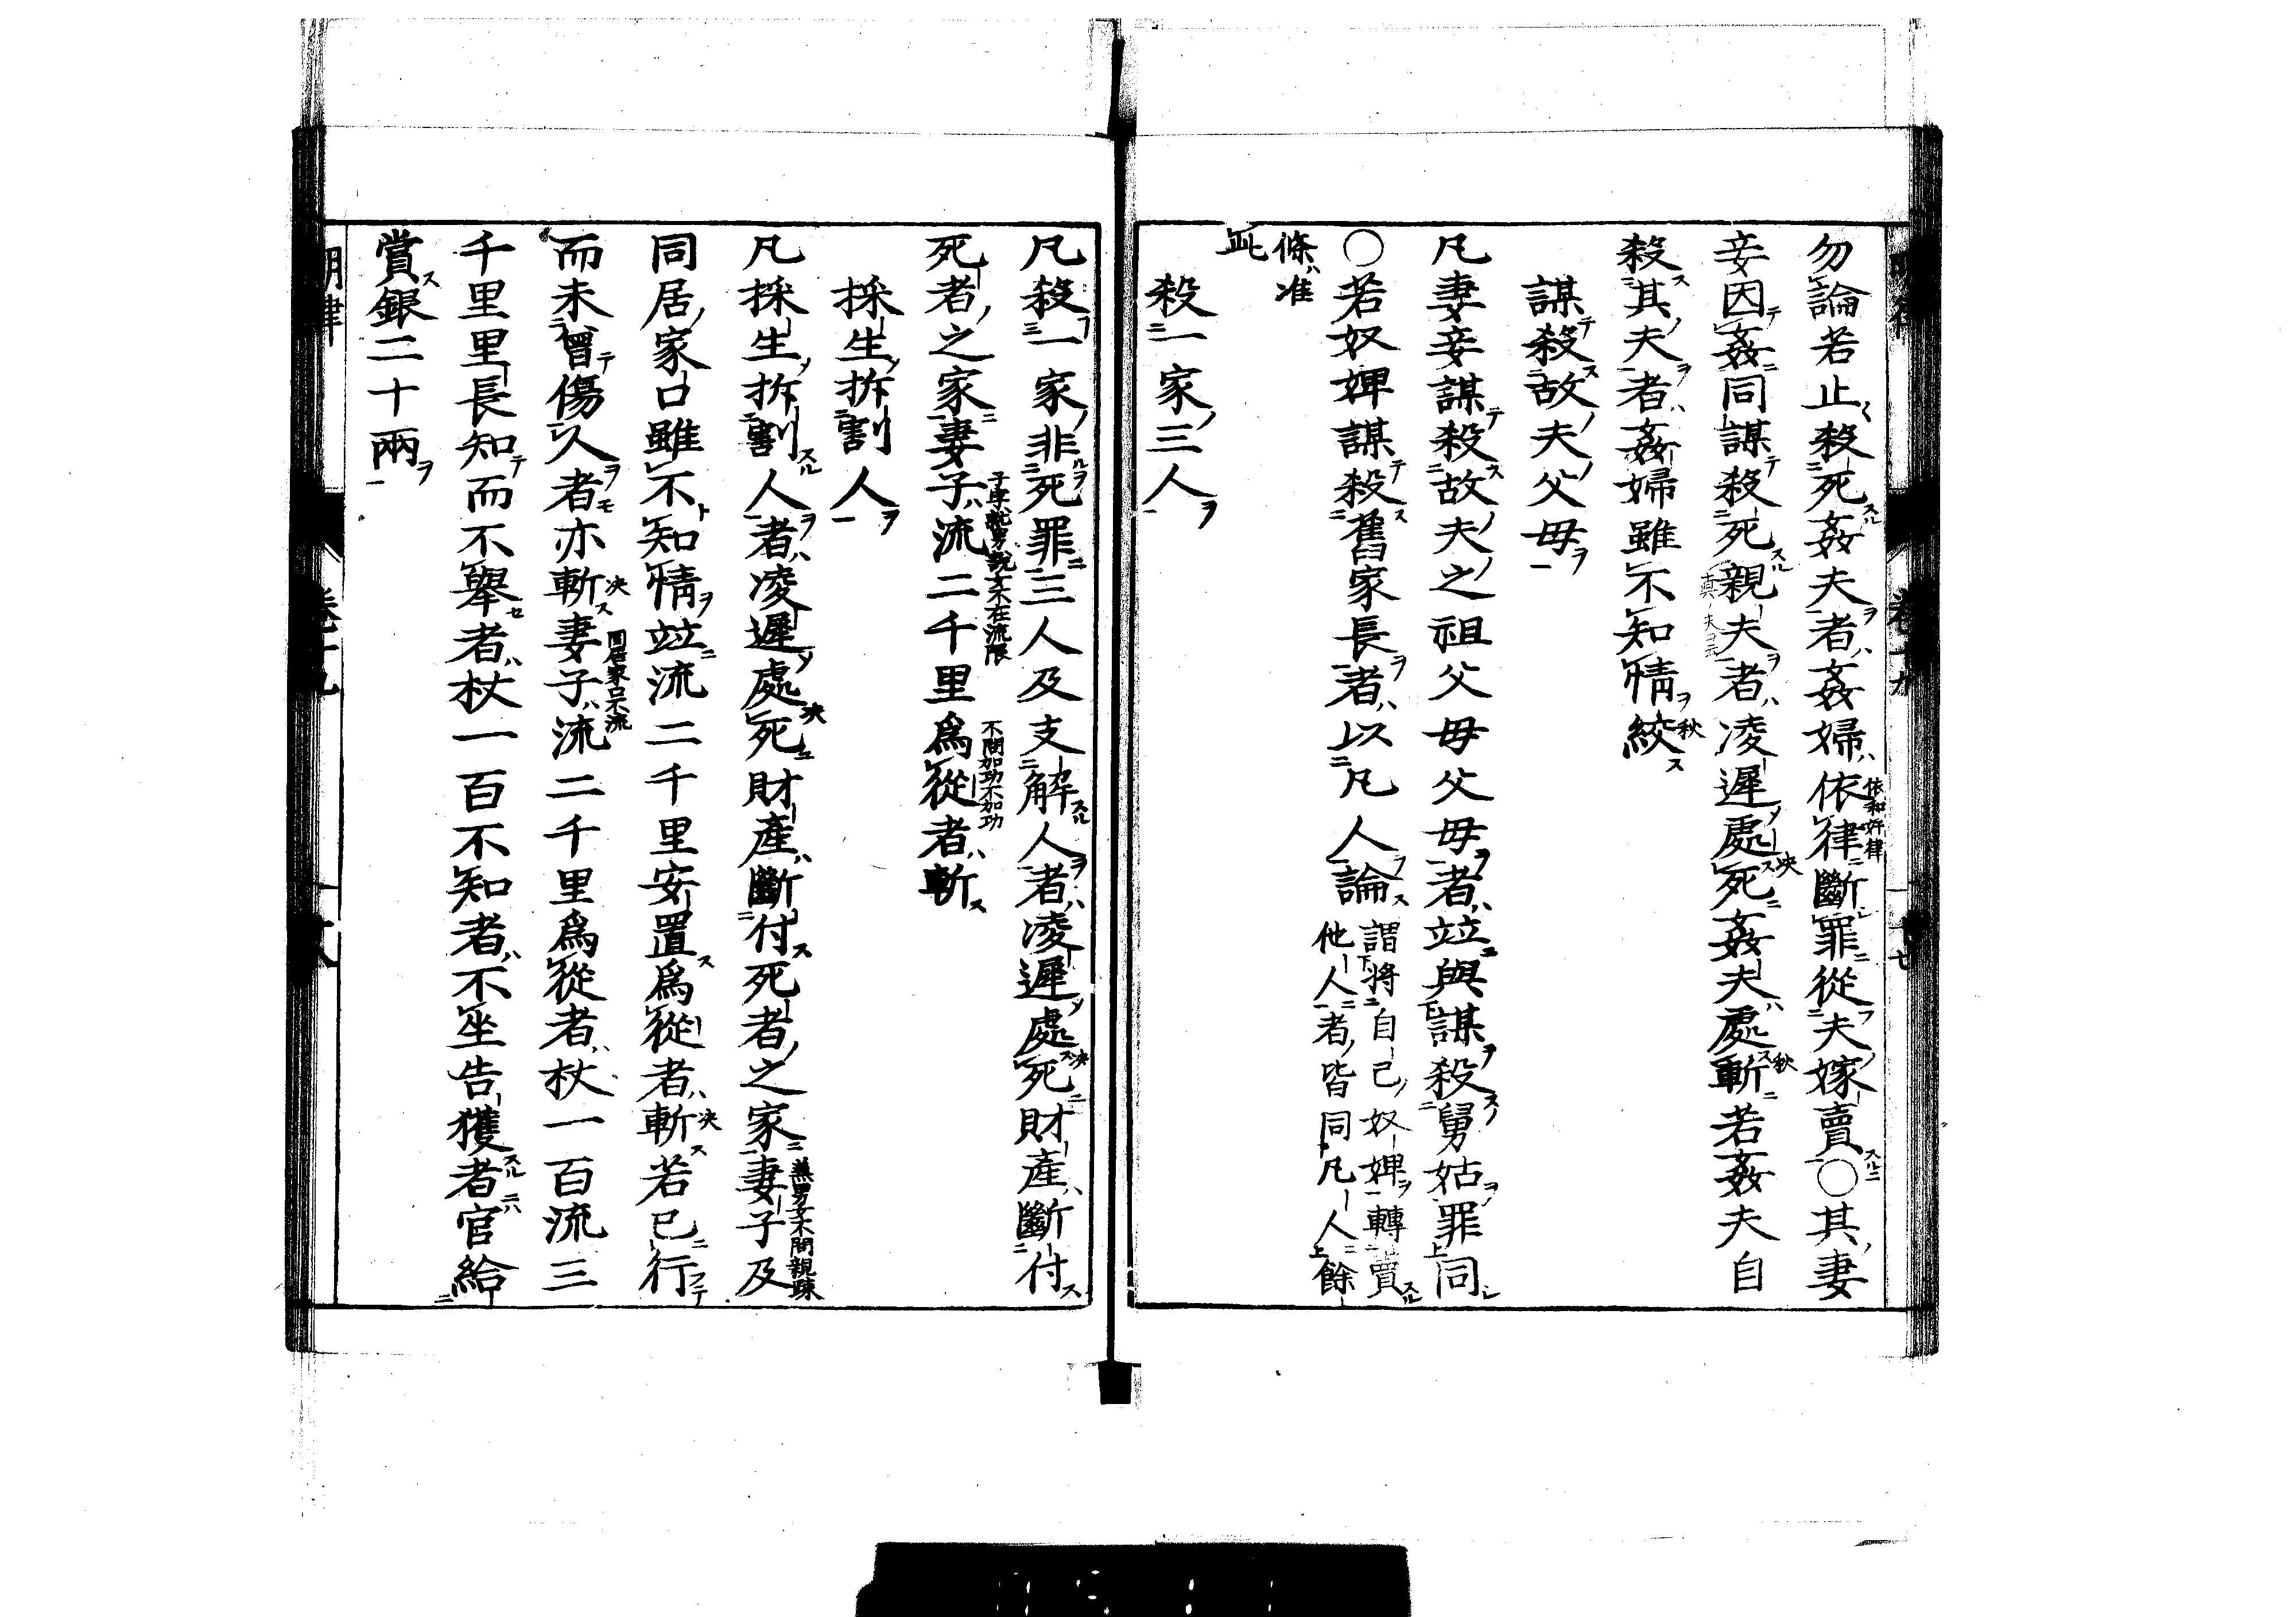 勿論若止殺死姦夫者姦婦依律斷罪從夫嫁賣〇其妻
依和奸律
妾因姦同謀殺死親夫者凌遲處死姦夫處斬若姦夫自
殺其夫者姦婦雖不知情絞
謀殺故夫父母
凡妻妾謀殺故夫之祖父母父母者竝與謀殺舅姑罪同
〇若奴婢謀殺舊家長者以凡人論
謂將自己奴婢轉賣
他人者皆同凡人餘
條准
此
殺一家三人
凡殺一家非死罪三人及支解人者凌遲處死財產斷付
死者之家妻子流二千里爲從者斬
不問加功不加功
採生拆割人
凡採生拆割人者凌遲處死財產斷付死者之家妻子及
兼男女不問親疎
同居家口雖不知情竝流二千里安置爲從者斬若已行
而未曾傷人者亦斬妻子流二千里爲從者杖一百流三
同居家口不流
千里里長知而不舉者杖一百不知者不坐告獲者官給
賞銀二十兩